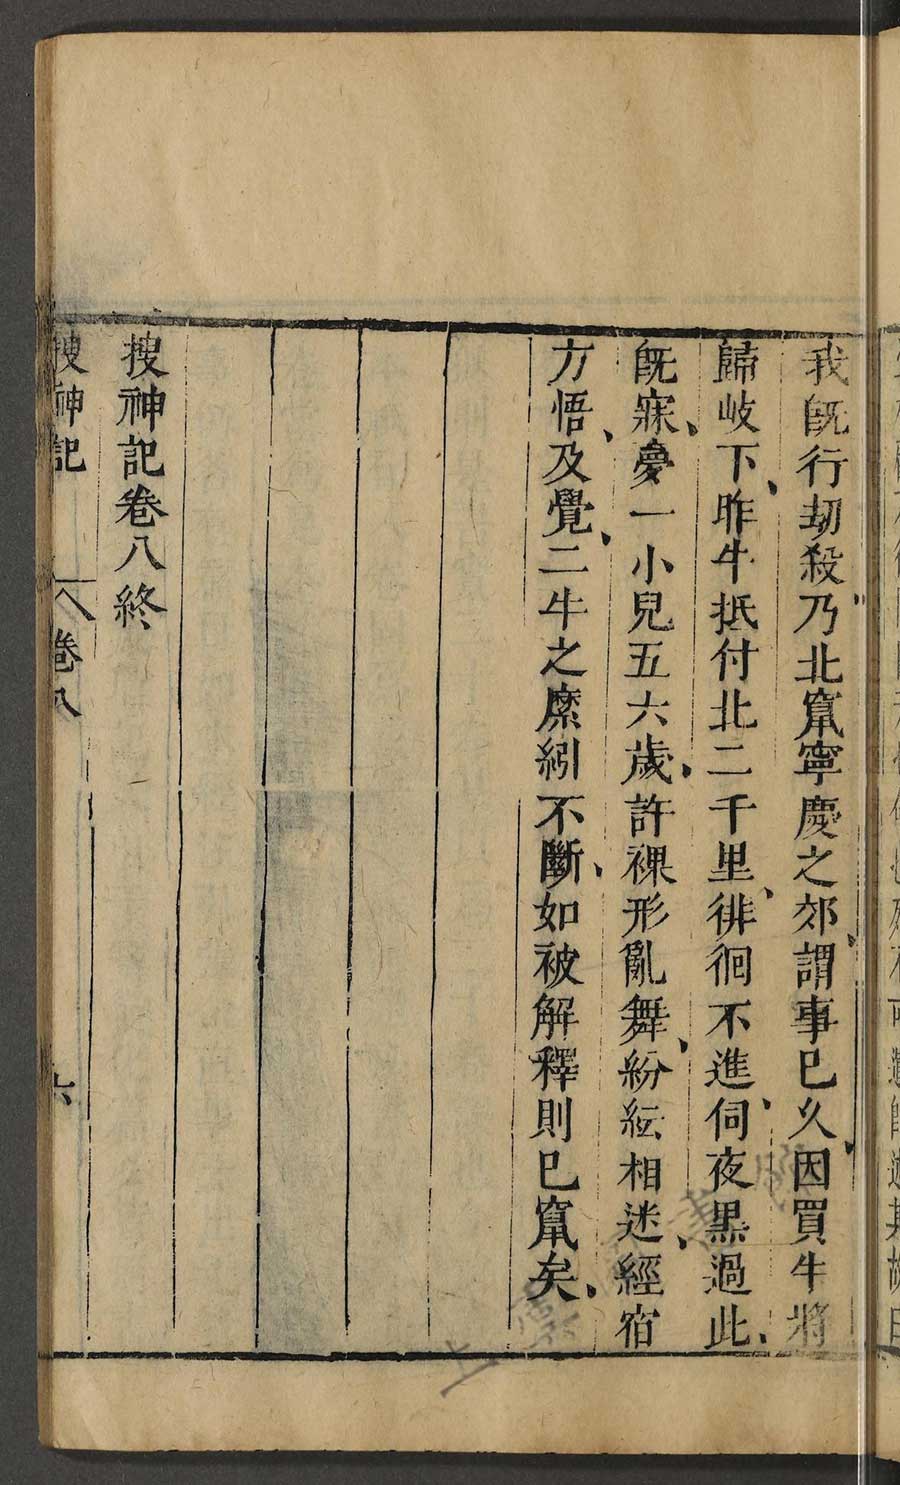 我旣行劫殺乃北竄寧慶之郊謂事已久因買牛將
歸岐下昨牛抵付北二千里徘徊不進伺夜黑過此
旣寐夢一小兒五六歲許裸形亂舞紛紜相迷經宿
方悟及覺二牛之縻紖不斷如被解釋則已竄矣
搜神記卷八終
搜神記 卷八 六